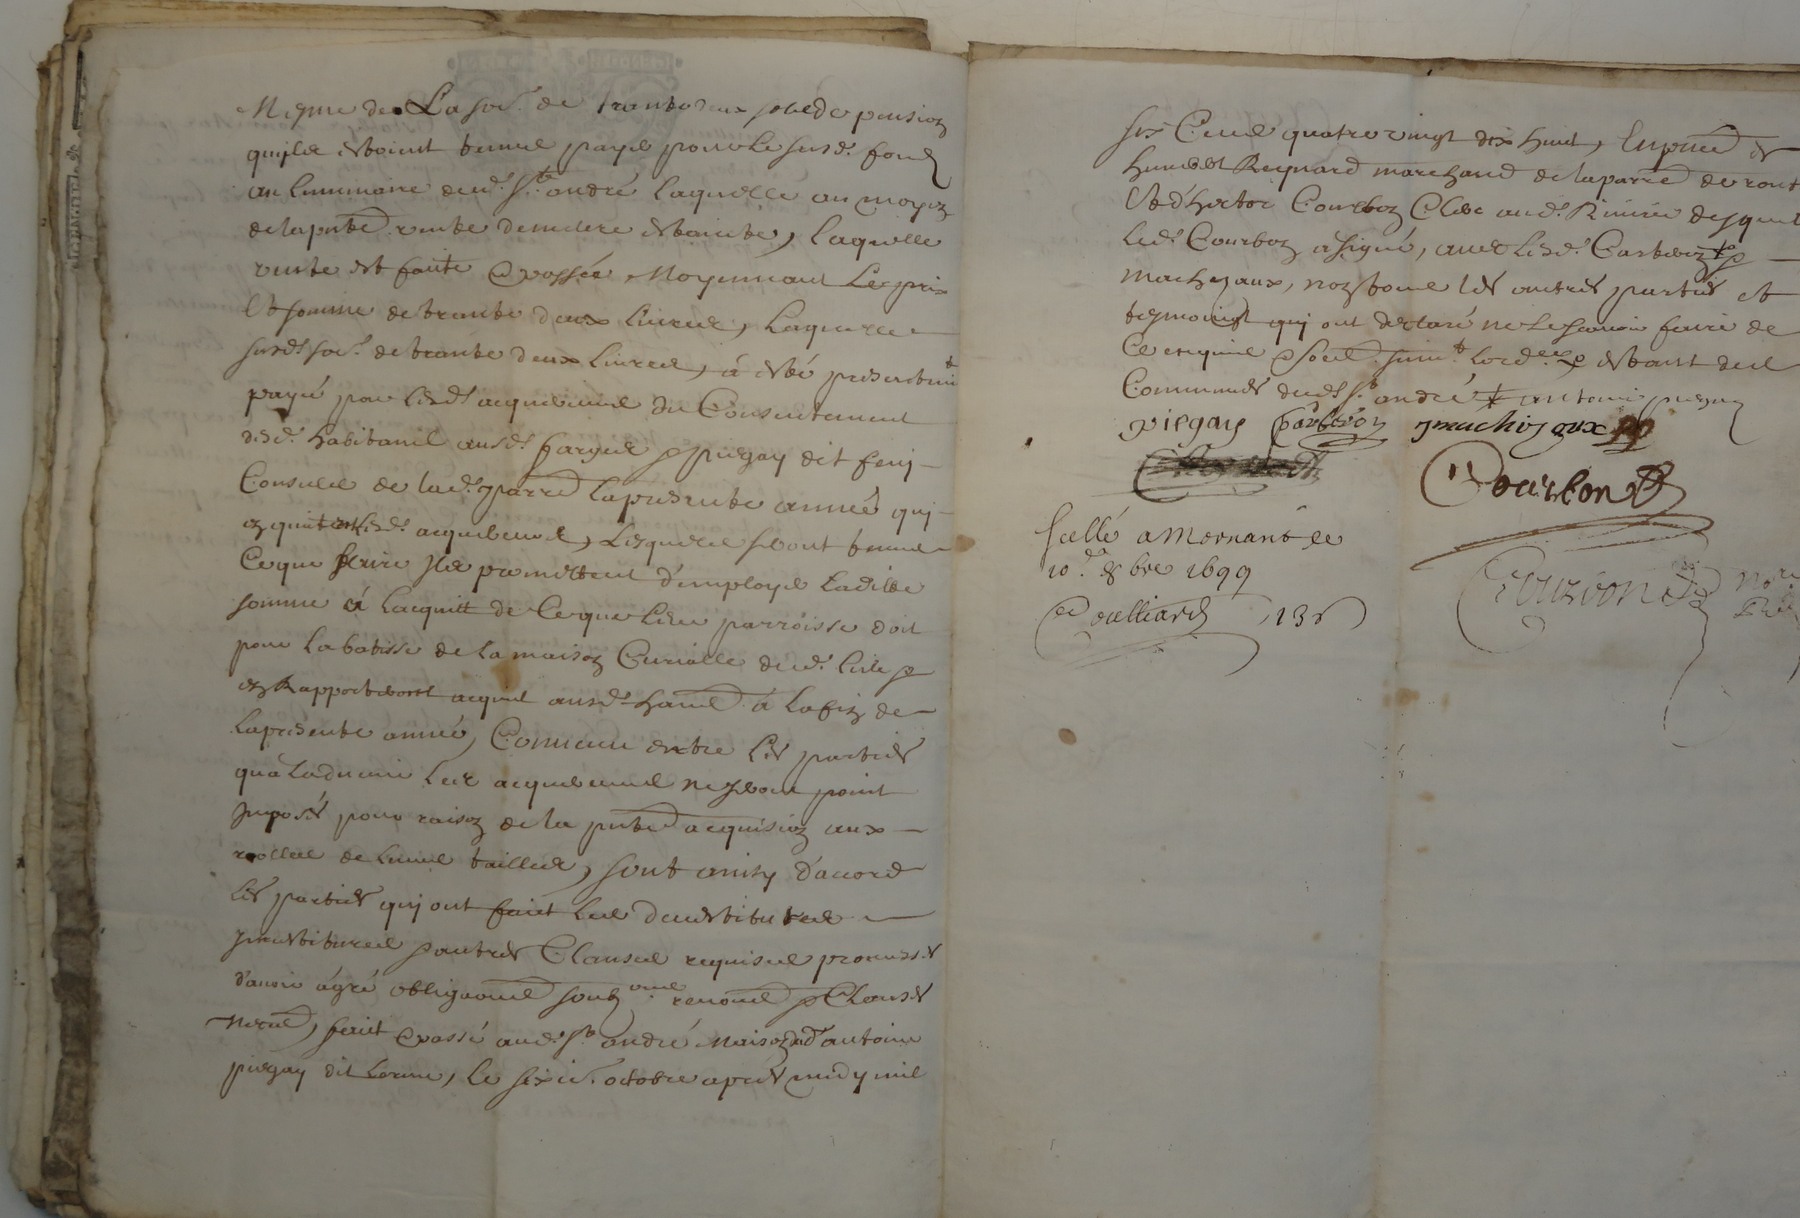 Mesme de la so͠e. de trante deux sols de pension
quils estoient tenus payer pour le susd. fond
au luminaire dud. St andré laquelle au moyen
de la pnte vente demeure estainte, laquelle
vente est faite & passée moyennant le prix
et somme de trante deux livres, laquelle
susd. so͠e. de trante deux livres, a esté presentemt
payé par lesd. acquereurs du consentement
desd. habitans ausd. fargue & piegay dit feni
Consuls de lad. parre la presente année qui
en quittent lesd. acquereurs, lesquels seront tenus
Ce que faire Ils promettent d'employer ladite
somme à l'acquitt de ce que leur parroisse doit
pour la batisse de la maison Curialle dud. lieu &
en Rapporteront acquit ausd. hans à la fin de
la presente année, Convenu entre les parties
qu'à l'advenir les acquereurs ne seront point
Imposés pour raison de la pnte acquision aux
rolles de leurs tailles, sont ainsy d'accord
les parties qui ont fait les devestitures
Investitures & autres Clauses requises promesses
d'avoir agré obligaons soubmons renons & Clauses
necres, fait & passé aud. St andré maison d'antoine
piegay dit Lorme, le sixie. octobre apres midy mil
six Cens quatre vingt dix huit, En pnce de
humbert Reynard marchand de la parre de ront
et d'hector Courbon Clerc aud. Riviere desquels
led. Courbon a signé, avec lesd. Carteron &
Machizaux, non tous les autres parties et
tesmoings qui ont declaré ne le scavoir faire de
Ce enquis & so͠es suivt lordce & estant des
Communes dud. St andré antoine piegay
piegay Carteron Jmachizaux
Courbon
Scellé a Mornant le
10e 8bre 1699
Goulliard 13s
Courbon Nore